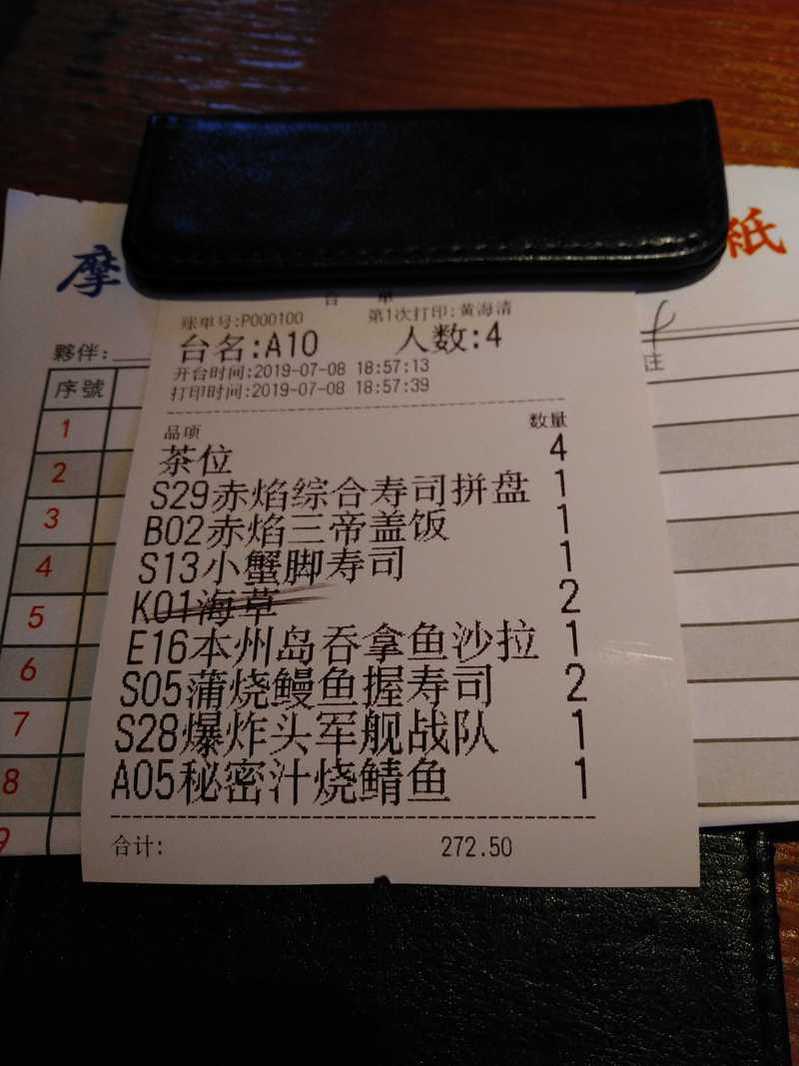 摩
紙
台 单
账单号:P000100 第1次打印:黄海清
台名:A10 人数:4
开台时间:2019-07-08 18:57:13
打印时间:2019-07-08 18:57:39
品项 数量
茶位 4
S29赤焰综合寿司拼盘 1
B02赤焰三帝盖饭 1
S13小蟹脚寿司 1
K01海草 2
E16本州岛吞拿鱼沙拉 1
S05蒲烧鳗鱼握寿司 2
S28爆炸头军舰战队 1
A05秘密汁烧鲭鱼 1
合计: 272.50
夥伴:
序號
注
1
2
3
4
5
6
7
8
9